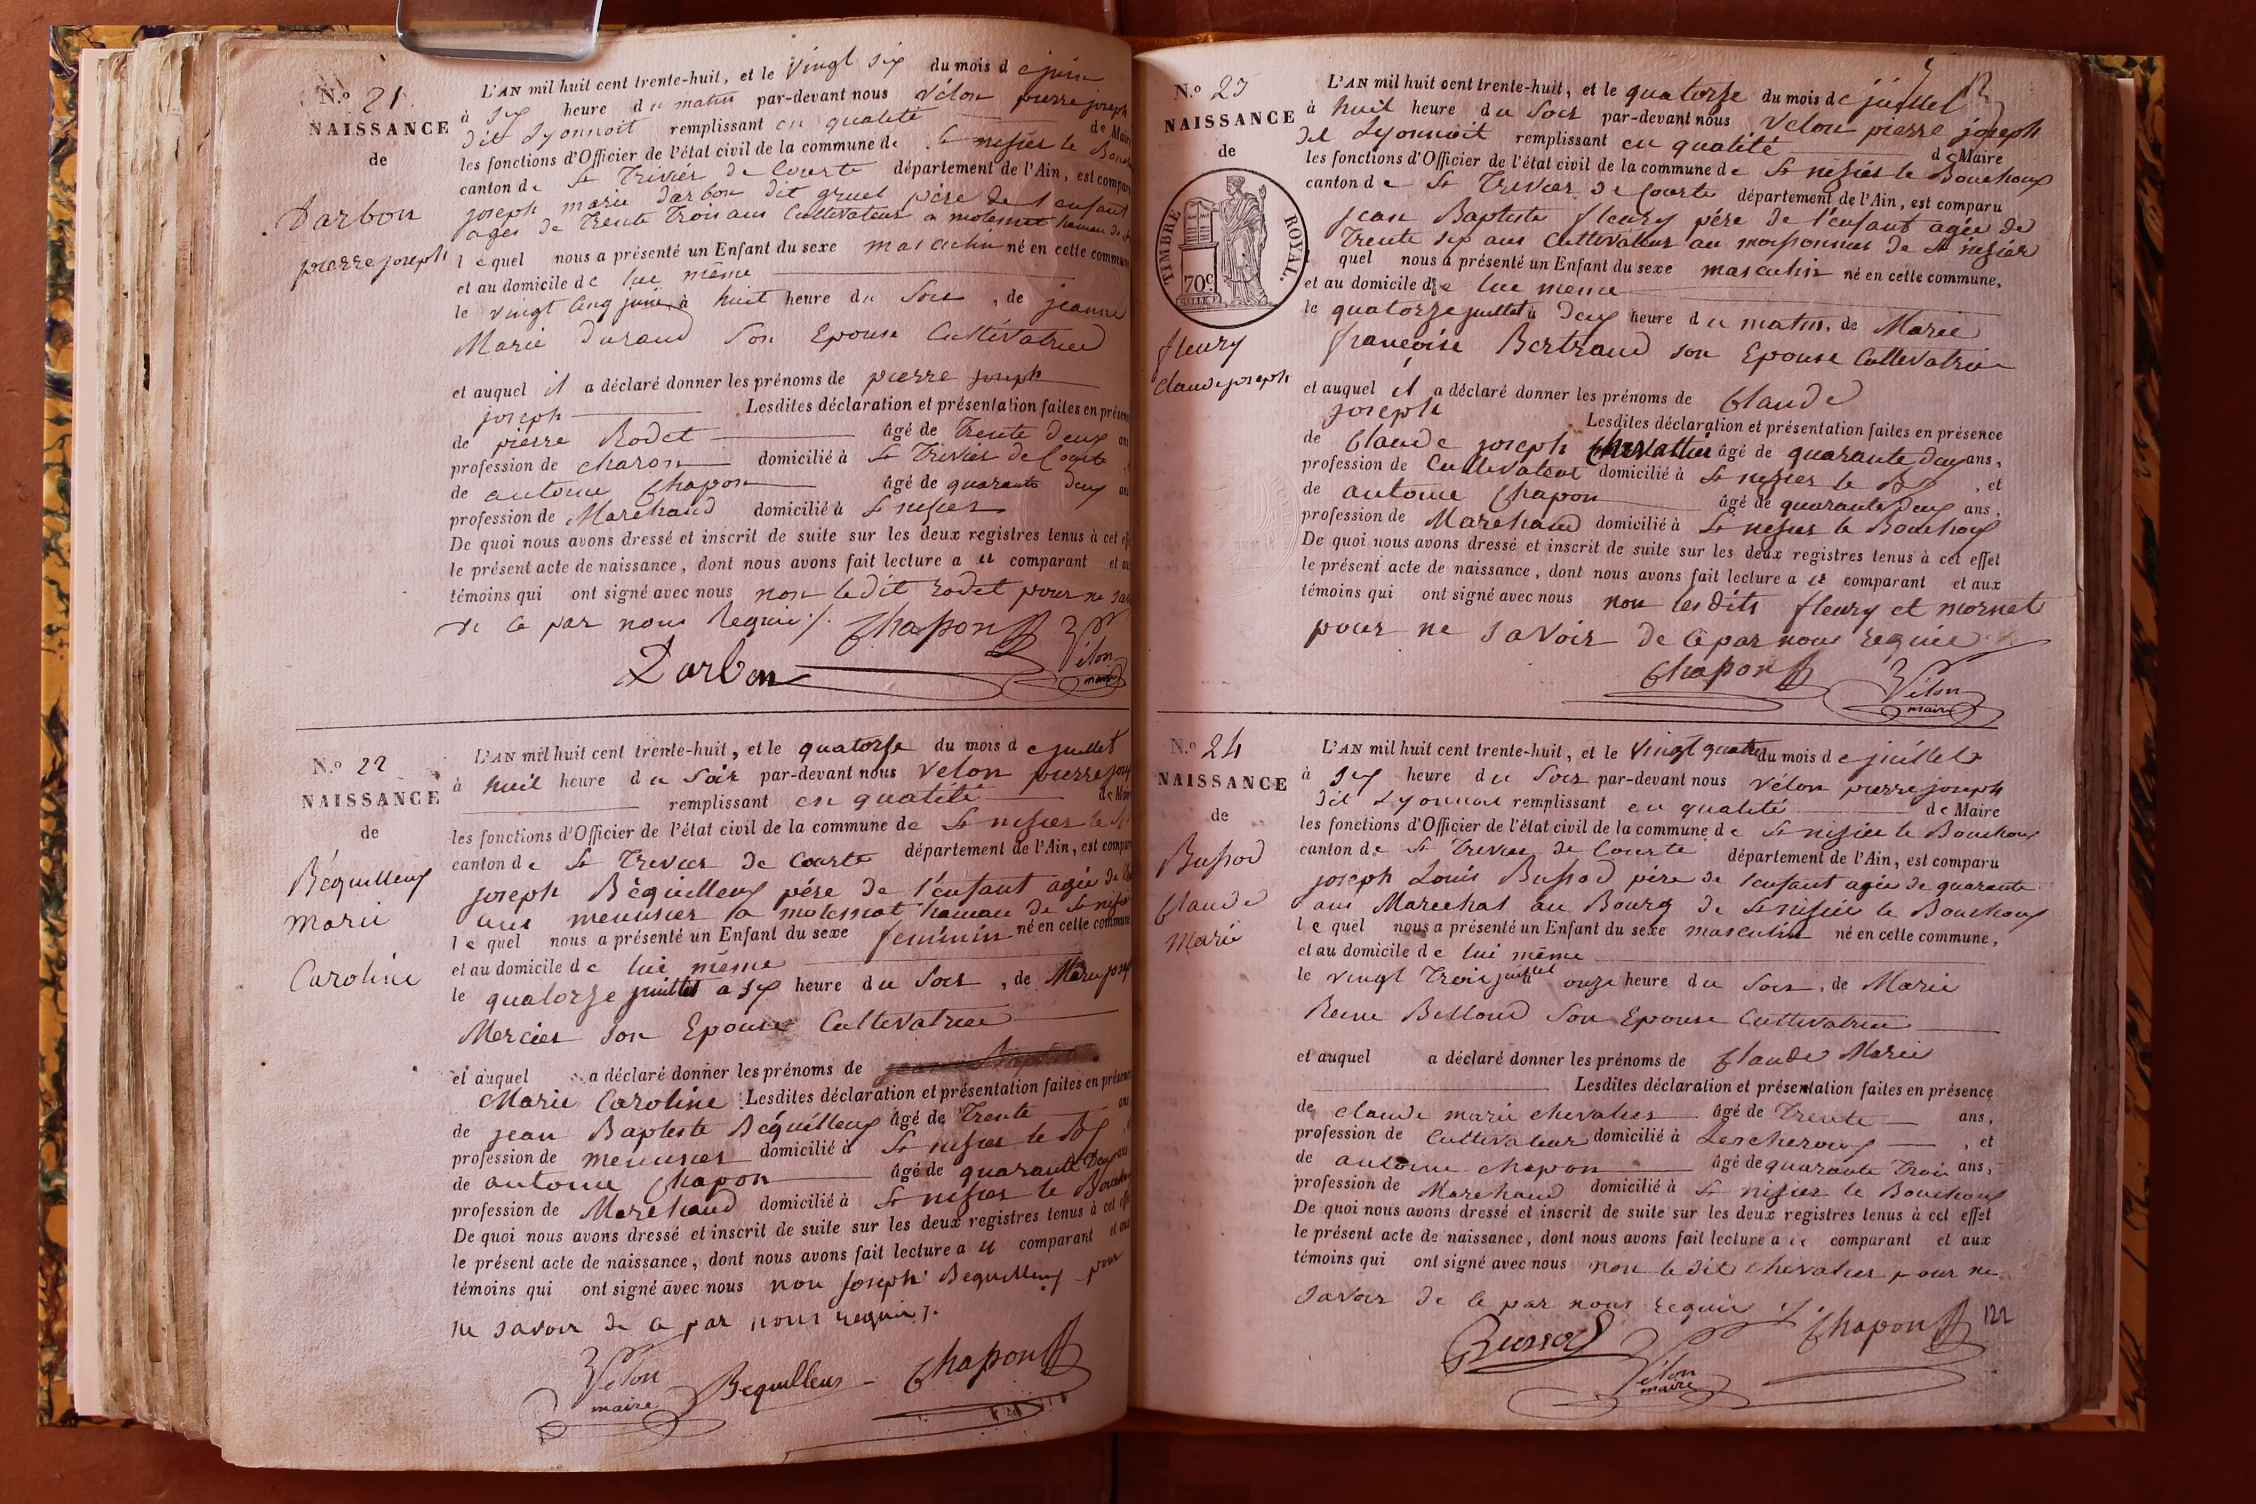 N.º 21
NAISSANCE
de
Darbon
pierre joseph
L'AN mil huit cent trente-huit, et le vingt six du mois de juin
à six heure du matin par-devant nous Vélon pierre joseph
dit Lyonnoit remplissant en qualité de Maire
les fonctions d'Officier de l'état civil de la commune de St nisier le
canton de St Trivier de Courte département de l'Ain, est
joseph marie Darbon dit gruel père de l'enfant
agée de Trente Trois ans Cultivateur a molessiat hameau de
le quel nous a présenté un Enfant du sexe masculin né en cette commune
et au domicile de lui même
le vingt cinq juin à huit heure du Soir, de jeanne
Marie Durand Son Epouse Cultivatrice
et auquel il a déclaré donner les prénoms de pierre joseph
joseph Lesdites déclaration et présentation faites en
de pierre Rodet âgé de Trente deux
profession de charon domicilié à St Trivier de Courte
de antoine Chapon âgé de quarante deux
profession de Marchand domicilié à St nisier
De quoi nous avons dressé et inscrit de suite sur les deux registres tenus à cet
le présent acte de naissance, dont nous avons fait lecture a u comparant et
témoins qui ont signé avec nous non ledit Rodet pour ne
de ce par nous Requis ./.
Chapon
Darbon
Vélon
maire
N.º 22
NAISSANCE
de
Béquilleux
Marie
Caroline
L'AN mil huit cent trente-huit, et le quatorze du mois de juillet
à huit heure du Soir par-devant nous Velon pierre
remplissant en qualité de
les fonctions d'Officier de l'état civil de la commune de St nisier le
canton de St Trivier de Courte département de l'Ain, est
joseph Béquilleux père de l'enfant agée de
ans menuisier a molessiat hameau de St nisier
le quel nous a présenté un Enfant du sexe feminin né en cette commune
et au domicile de lui même
le quatorze juillet a six heure du Soir, de Marie
Mercier Son Epouse Cultivatrice
et auquel a déclaré donner les prénoms de
Marie Caroline Lesdites déclaration et présentation faites en
de jean Baptiste Béquilleux âgé de Trente
profession de menuisier domicilié à St nisier le
de antoine Chapon âgé de quarante Deux
profession de Marchand domicilié à St nisier le
De quoi nous avons dressé et inscrit de suite sur les deux registres tenus à cet
le présent acte de naissance, dont nous avons fait lecture a u comparant et
témoins qui ont signé avec nous non joseph Bequilleux pour
ne savoir de ce par nous requis ./.
Vélon
maire
Bequilleux
Chapon
N.º 23
NAISSANCE
de
TIMBRE ROYAL.
70c
fleury
Claude joseph
L'AN mil huit cent trente-huit, et le quatorze du mois de juillet
à huit heure du Soir par-devant nous Velon pierre joseph
dit Lyonnoit remplissant en qualité de Maire
les fonctions d'Officier de l'état civil de la commune de St nisier le Bouchoux
canton de St Trivier de Courte département de l'Ain, est comparu
jean Baptiste fleury père de l'enfant agée de
Trente six ans Cultivateur au moissonnier de St nisier
quel nous a présenté un Enfant du sexe masculin né en cette commune,
et au domicile de lui meme
le quatorze juillet à Deux heure du matin, de Marie
françoise Bertrand son Epouse Cultivatrice
et auquel il a déclaré donner les prénoms de Claude
joseph Lesdites déclaration et présentation faites en présence
de Claude joseph âgé de quarante deux ans,
profession de Cultivateur domicilié à St nisier le , et
de antoine Chapon âgé de quarante Deux ans,
profession de Marchand domicilié à St nisier le Bouchoux
De quoi nous avons dressé et inscrit de suite sur les deux registres tenus à cet effet
le présent acte de naissance, dont nous avons fait lecture a u comparant et aux
témoins qui ont signé avec nous non les dits fleury et mornet
pour ne savoir de ce par nous requis
Chapon
Vélon
maire
N.º 24
NAISSANCE
de
Bussod
Claude
Marie
L'AN mil huit cent trente-huit, et le vingt quatre du mois de juillet
à six heure du Soir par-devant nous Vélon pierre joseph
dit Lyonnoit remplissant en qualité de Maire
les fonctions d'Officier de l'état civil de la commune de St nisier le Bouchoux
canton de St Trivier de Courte département de l'Ain, est comparu
joseph Louis Bussod père de l'enfant agée de quarante
ans Marechal au Bourg de St nisier le Bouchoux
le quel nous a présenté un Enfant du sexe masculin né en cette commune,
et au domicile de lui même
le vingt Trois juillet à onze heure du Soir, de Marie
Reine Billoud Son Epouse Cultivatrice
et auquel a déclaré donner les prénoms de Claude Marie
Lesdites déclaration et présentation faites en présence
de claude marie chevalier âgé de Trente ans,
profession de Cultivateur domicilié à Lescheroux , et
de antoine chapon âgé de quarante Trois ans,
profession de Marchand domicilié à St nisier le Bouchoux
De quoi nous avons dressé et inscrit de suite sur les deux registres tenus à cet effet
le présent acte de naissance, dont nous avons fait lecture a u comparant et aux
témoins qui ont signé avec nous non ledit chevalier pour ne
savoir de ce par nous requis ./.
Bussod
Vélon
maire
Chapon
122